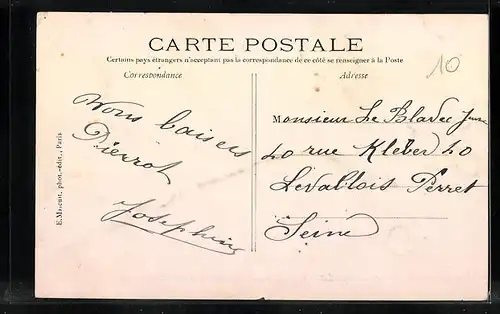 CARTE POSTALE
Certains pays étrangers n'acceptant pas la correspondance de ce côté se renseigner à la Poste
Correspondance
Adresse
10
baisers
Pierrot
Joséphine
Monsieur Le Bladec
40 rue Kléber 40
Levallois Perret
Seine
phot.-édit., Paris